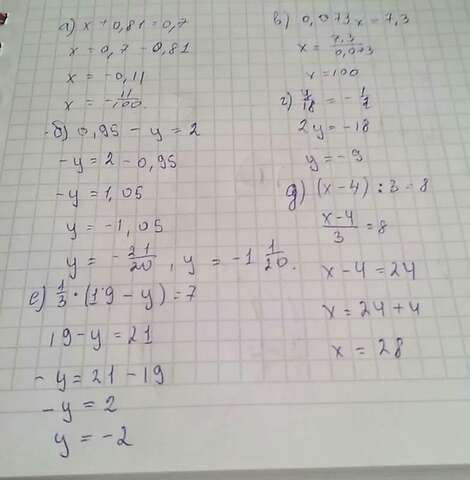 а) x + 0,81 = 0,7
x = 0,7 - 0,81
x = -0,11
x = -11/100.
б) 0,95 - y = 2
-y = 2 - 0,95
-y = 1,05
y = -1,05
y = -21/20, y = -1 1/20.
в) 0,073x = 7,3
x = 7,3/0,073
x = 100
г) y/18 = -1/2
2y = -18
y = -9
д) (x-4) : 3 = 8
x-4/3 = 8
x-4 = 24
x = 24+4
x = 28
е) 1/3 · (19 - y) = 7
19-y = 21
-y = 21-19
-y = 2
y = -2